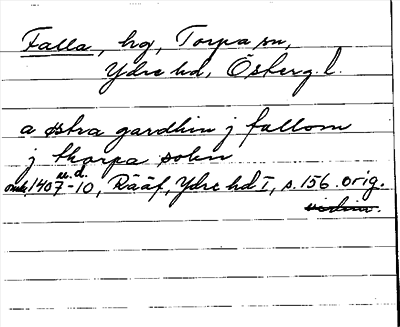 Falla, hg, Torpa sn,
Ydre hd, Österg. l.
a østra gardhin j fallom
j thorpa sokn
u. d.
omkr. 1407-10, Rääf, Ydre hd I, s. 156. orig.
vidim.